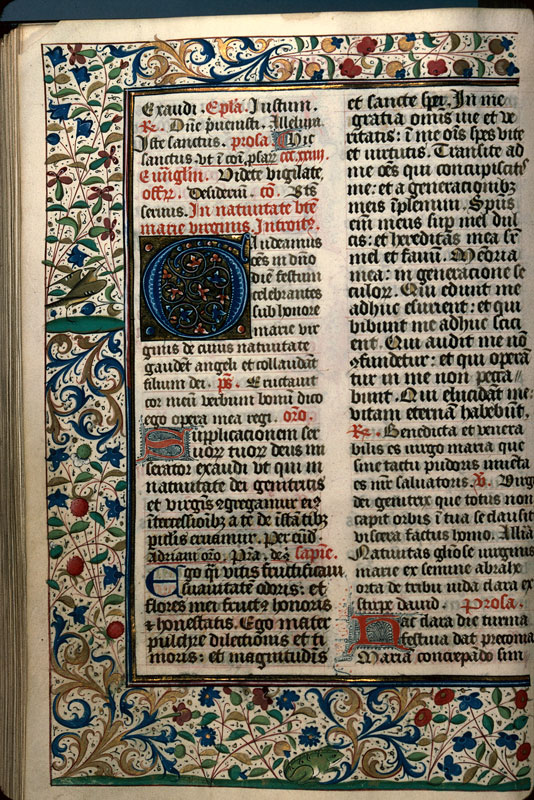 Exaudi . Epl̄a. Iustum.
R̄. Dn̄e p̄uenisti. Alleluya.
Iste sanctus. prosa. Hic
sanctus. vt ī cōi, psar̄ ccc.xxiii.
Euuāglm̄. Videte vigilate,
offer̄. Desideriū. cō. Vtē
seruus. In natiuitate btē
marie virginis. Introitꝰ.
Gaudeamus
oēs in dn̄o
diē festum
celebrantes
sub honore
marie vir
ginis de cuius natiuitate
gaudēt angeli et collaudāt
filium dei. p̄s. Eructauit
cor meū verbum bonū dico
ego opera mea regi. or̄o.
Supplicationem ser
uor̄ tuor̄ deus mi
serator exaudi vt qui in
natiuitate dei genitricis
et virgīs ꝯgregamur eiꝰ
ītercessiōibꝫ a te de īstātibꝫ
pīclis eruamur. Per eūd̄.
Adriani or̄o. Pr̄a. dꝫ sapīe.
Ego q̄i vitis fructificaui
suauitatē odoris: et
flores mei fructꝰ honoris
⁊ honestatis. Ego mater
pulchre dilectionis et ti
moris: et magnitudīs
et sancte sper̄. In me
gratia omīs uie et ve
ritatis: ī me oīs spes vite
et uirtutis. Transite ad
me oēs qui concupiscitis
me: et a generationibꝫ
meis īplemini. Spūs
eīm meus sup mel dul
cis: et hereditas mea sr̄
mel et fauū. Memoria
mea: in generacione se
culor̄. Qui edunt me
adhuc esurient: et qui
bibunt me adhuc siti
ent. Qui audit me nō
ꝯfundetur: et qui operā
tur in me non pecca//
bunt. Qui elucidāt me:
vitam eternā habebūt.
R̄. Benedicta et venera
bilis es uirgo maria que
sine tactu pudoris inuēta
es mr̄ saluatoris. v̄. Virgo
dei genitrix que totus non
capit orbis ī tua se clausit
viscera factus homo. Allīa
Natiuitas gl̄iose uirginis
marie ex semine abrahe
orta de tribu iuda clara ex
stirpe dauid. Prosa.
Hac clara die turma
festiua dat preconia
Maria concrepādo sim